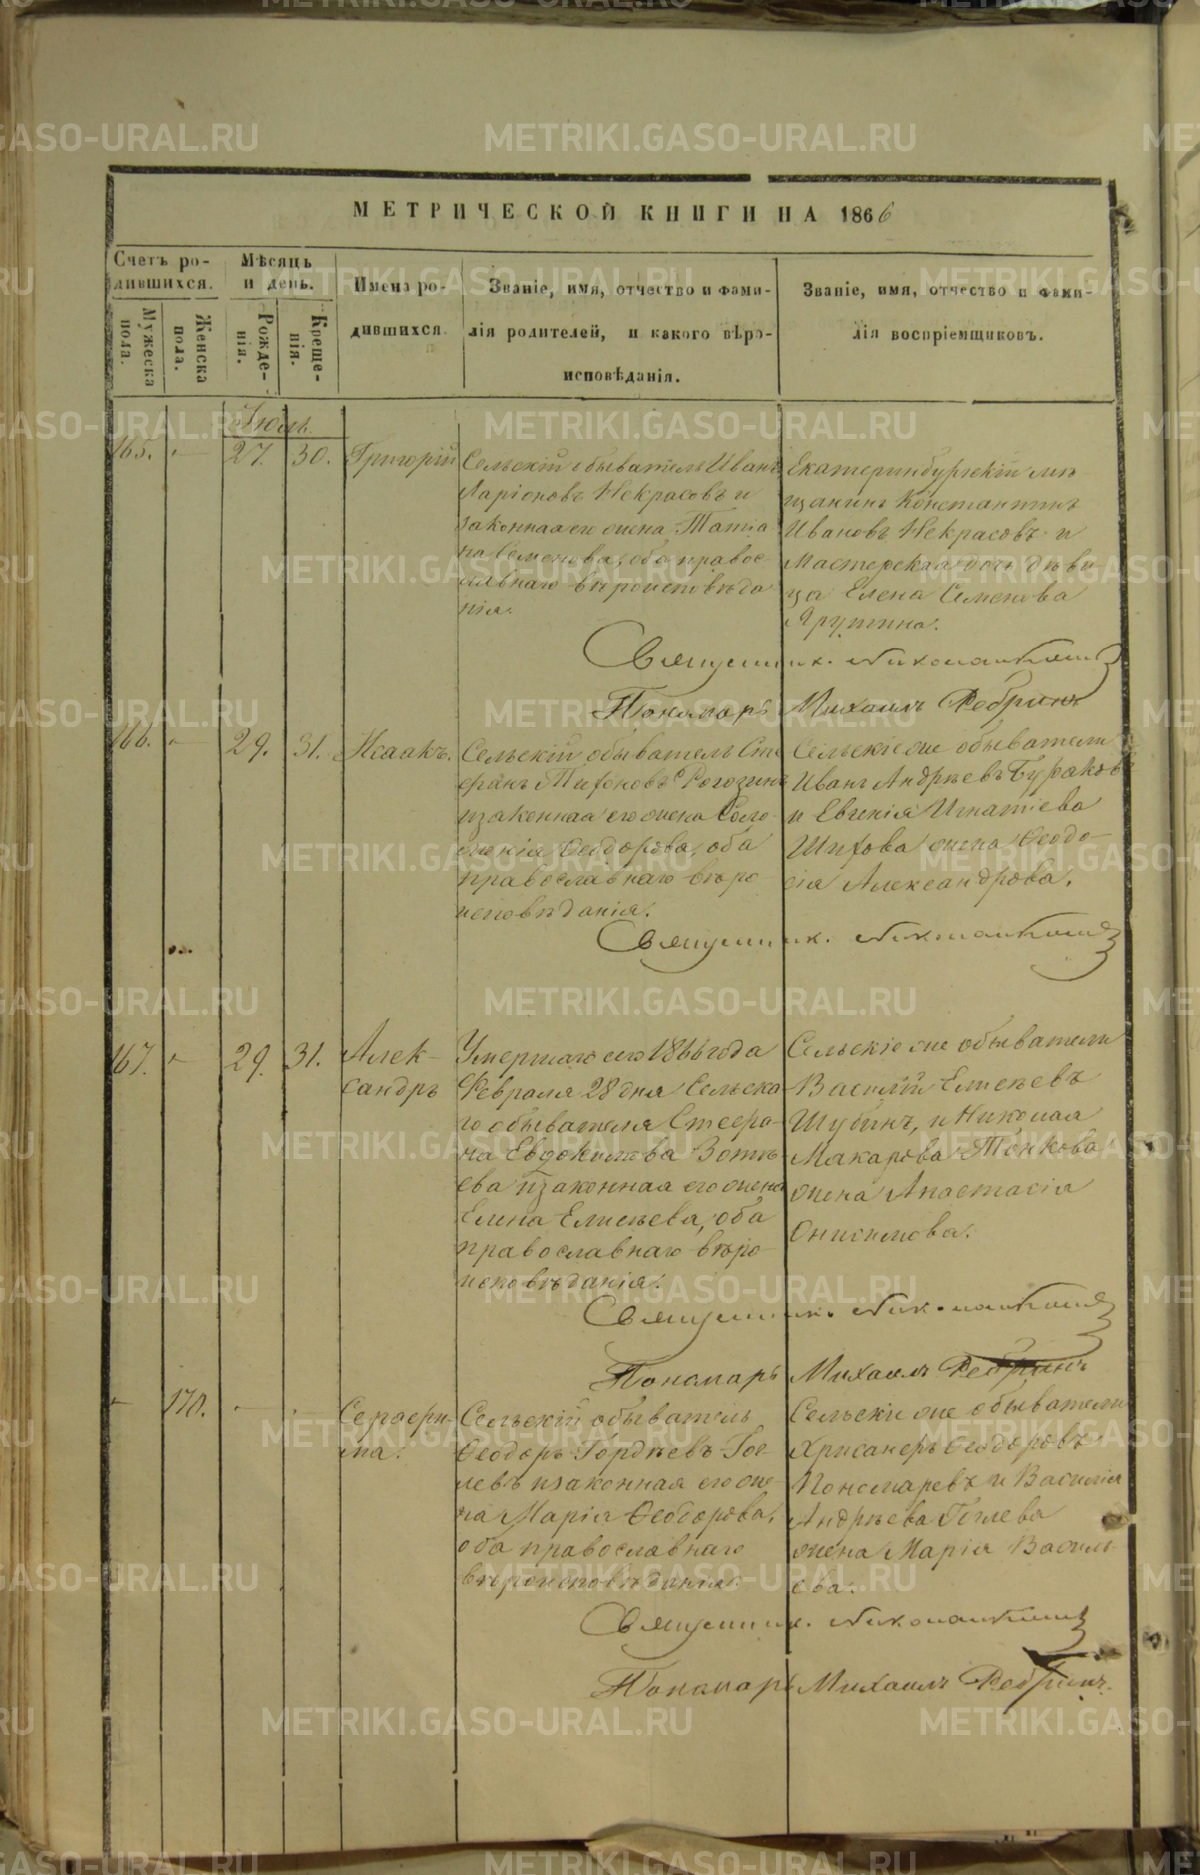 МЕТРИЧЕСКОЙ КНИГИ НА 1866
Счетъ ро-
дившихся.
Мужеска
пола.
Женска
пола.
Мѣсяцъ
и день.
Рожде-
нія.
Креще-
нія.
Имена ро-
дившихся.
Званіе, имя, отчество и фами-
лія родителей, и какого вѣро-
исповѣданія.
Званіе, имя, отчество и фами-
лія воспріемщиковъ.
Іюль.
165. 27. 30. Григорій
Сельскій обыватель Иванъ
Ларіоновъ Некрасовъ и
законная его жена Татіа
на Семенова, оба правос-
лавнаго вѣроисповѣда
нія.
Екатеринбургскій мѣ
щанинъ Константинъ
Ивановъ Некрасовъ и
Мастерская дочь дѣви
ца Елена Семенова
Священник.
Пономарь Михаилъ Ребринъ
166. 29. 31. Исаакъ.
Сельскій обыватель Сте
фанъ Тихоновъ Рогозинъ
и законная его жена Соло-
монія Ѳеодорова, оба
православнаго вѣро-
исповѣданія.
Сельскіе же обыватели
Иванъ Андрѣевъ Бураковъ
и Евгенія Игнатіева
Шихова жена Ѳеодо-
сія Александрова.
Священник.
167. 29. 31. Алек-
сандръ
Умершаго сего 1866 года
Февраля 28 дня Сельска-
го обывателя Стефа-
на Евдокимова Зотѣ-
ева и законная его жена
Елена Елисѣева, оба
православнаго вѣро-
исповѣданія.
Сельскіе же обыватели
Василій Елисѣевъ
Шубинъ, и Николая
Макарова Тонкова
жена Анастасія
Онисимова.
Священник.
Пономарь Михаилъ Ребринъ
170. Серафи-
ма.
Сельскій обыватель
Ѳеодоръ Гордѣевъ Гог-
левъ и законная его же-
на Марія Ѳеодорова,
оба православнаго
вѣроисповѣданія.
Сельскіе же обыватели
Хрисанфъ Ѳеодоровъ
Пономаревъ и Василія
Андрѣева Гоглева
жена Марія Василь-
ева.
Священник.
Пономарь Михаилъ Ребринъ.
METRIKI.GASO-URAL.RU